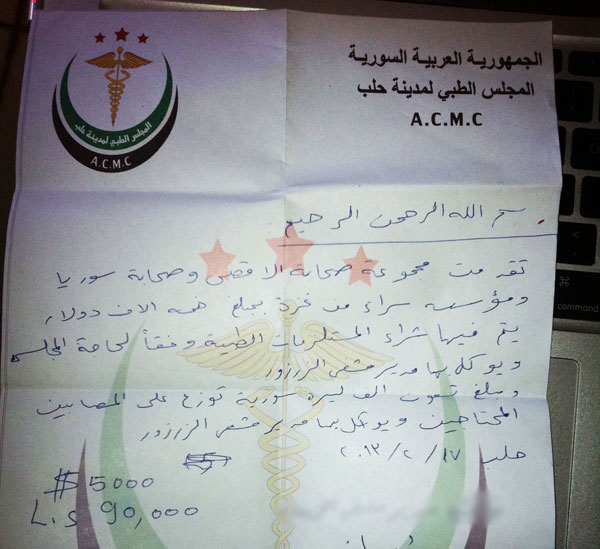 الجمهورية العربية السورية
المجلس الطبي لمدينة حلب
A.C.M.C
المجلس الطبي لمدينة حلب
A.C.M.C
بسم الله الرحمن الرحيم
تقدمت مجموعة صحابة الاقصى وصحابة سوريا
ومؤسسه سراء من غزة بمبلغ خمسه الاف دولار
يتم فيها شراء المستلزمات الطبية وفقاً لحاجة المجلس
ويوكل بها مدير مشفى الزرزور
ومبلغ تسعون الف ليرة سورية توزع على المصابين
المحتاجين ويوكل بها مدير مشفى الزرزور
حلب ١٧/٢/٢٠١٣
$ 5000
L.s 90,000
command